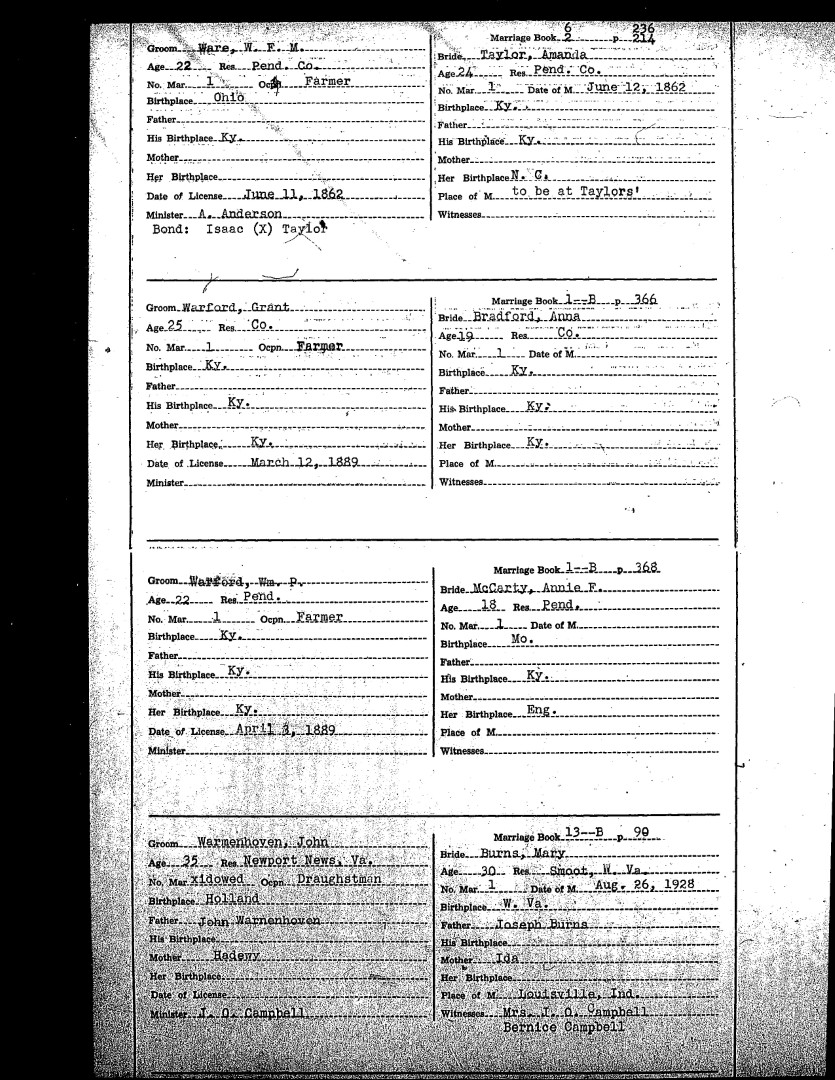 Groom Ware, W. F. M.
Age 22 Res. Pend. Co.
No. Mar. 1 Ocpn Farmer
Birthplace Ohio
Father
His Birthplace Ky.
Mother
Her Birthplace
Date of License June 11, 1862
Minister A. Anderson
Bond: Isaac (X) Taylor
6 236
Marriage Book 2 p. 214
Bride Taylor, Amanda
Age 24 Res. Pend. Co.
No. Mar. 1 Date of M. June 12, 1862
Birthplace Ky.
Father
His Birthplace Ky.
Mother
Her Birthplace N. C.
Place of M. to be at Taylors'
Witnesses
Groom Warford, Grant
Age 25 Res. Co.
No. Mar. 1 Ocpn. Farmer
Birthplace Ky.
Father
His Birthplace Ky.
Mother
Her Birthplace Ky.
Date of License March 12, 1889
Minister
Marriage Book 1--B p. 366
Bride Bradford, Anna
Age 19 Res. Co.
No. Mar. 1 Date of M.
Birthplace Ky.
Father
His Birthplace Ky.
Mother
Her Birthplace Ky.
Place of M.
Witnesses
Groom Warford, Wm. P.
Age 22 Res. Pend.
No. Mar. 1 Ocpn. Farmer
Birthplace Ky.
Father
His Birthplace Ky.
Mother
Her Birthplace Ky.
Date of License April , 1889
Minister
Marriage Book 1--B p. 368
Bride McCarty, Annie F.
Age 18 Res. Pend.
No. Mar. 1 Date of M.
Birthplace Mo.
Father
His Birthplace Ky.
Mother
Her Birthplace Eng.
Place of M.
Witnesses
Groom Warmenhoven, John
Age 35 Res. Newport News, Va.
No. Mar. xidowed Ocpn. Draughstman
Birthplace Holland
Father John Warnenhoven
His Birthplace
Mother Hadewy
Her Birthplace
Date of License
Minister J. O. Campbell
Marriage Book 13--B p. 90
Bride Burns, Mary
Age 30 Res. Smoot, W. Va.
No. Mar. 1 Date of M. Aug. 26, 1928
Birthplace W. Va.
Father Joseph Burns
His Birthplace
Mother Ida
Her Birthplace
Place of M. Louisville, Ind.
Witnesses Mrs. J. O. Campbell
Bernice Campbell